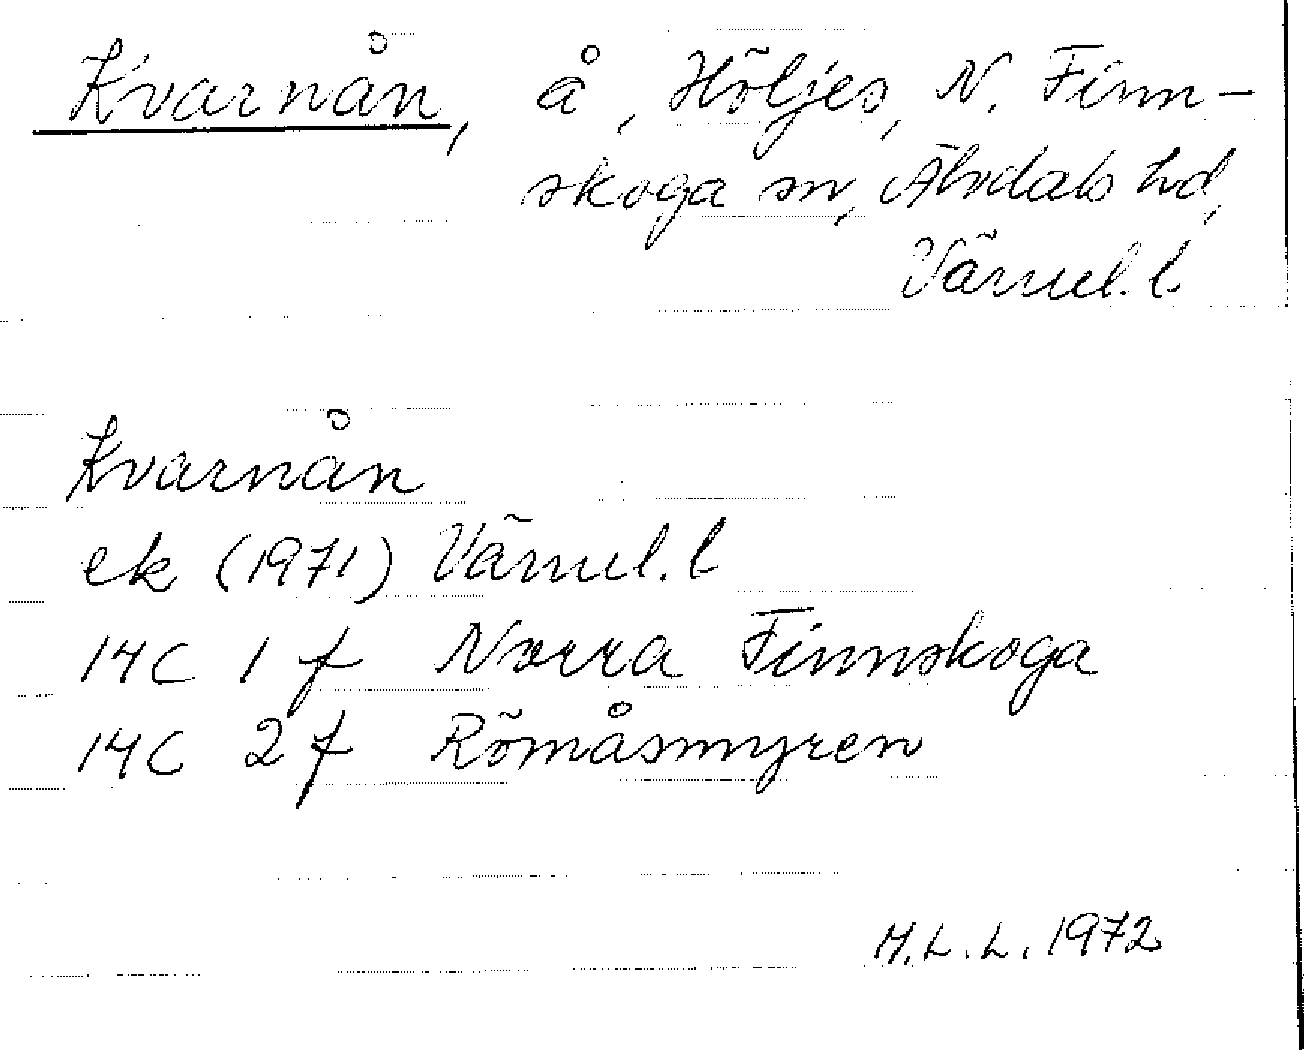 Kvarnån, å, Höljes, N. Finn-
skoga sn, Älvdals hd,
Värml. l.
Kvarnån
ek (1971) Värml. l
14C 1 f Norra Finnskoga
14C 2 f Römåsmyren
M.L.L. 1972